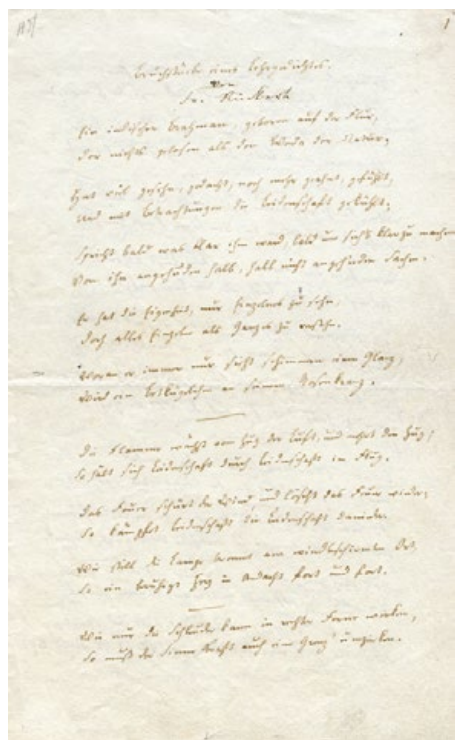 1
Bruchstücke eines Lehrgedichtes.
Von
Fr. Rückert
Ein indischer Brahman, geboren auf der Flur,
der nichts gelesen als den Weda der Natur,
Hat viel gesehn, gedacht, noch mehr geahnt, gefühlt,
und mit Betrachtungen die Leidenschaft gekühlt,
Spricht bald was klar ihm ward, bald um sichs klar zu machen,
Von ihn angehnden halb, halb nicht angehnden Sachen.
Er hat die Eigenheit, nur Einzelnes zu sehn,
doch alles Einzelne als Ganzes zu verstehn.
Woran er immer nur sieht schimmern einen Glanz,
Wird ein Betkügelchen an seinem Rosenkranz.
Die Flamme wächst vom Zug der Luft, und mehrt den Zug;
so hält sich Leidenschaft durch Leidenschaft im Flug.
das Feuer schürt der Wind und löscht das Feuer wieder,
so kämpfet Leidenschaft die Leidenschaft danieder.
Wie still die Lampe brennt am windbeschirmten Ort,
so ein beruhigt Herz in Andacht fort und fort.
Wie nur die Schleuder kann in rechter Ferne wirken,
so muß der Sinn